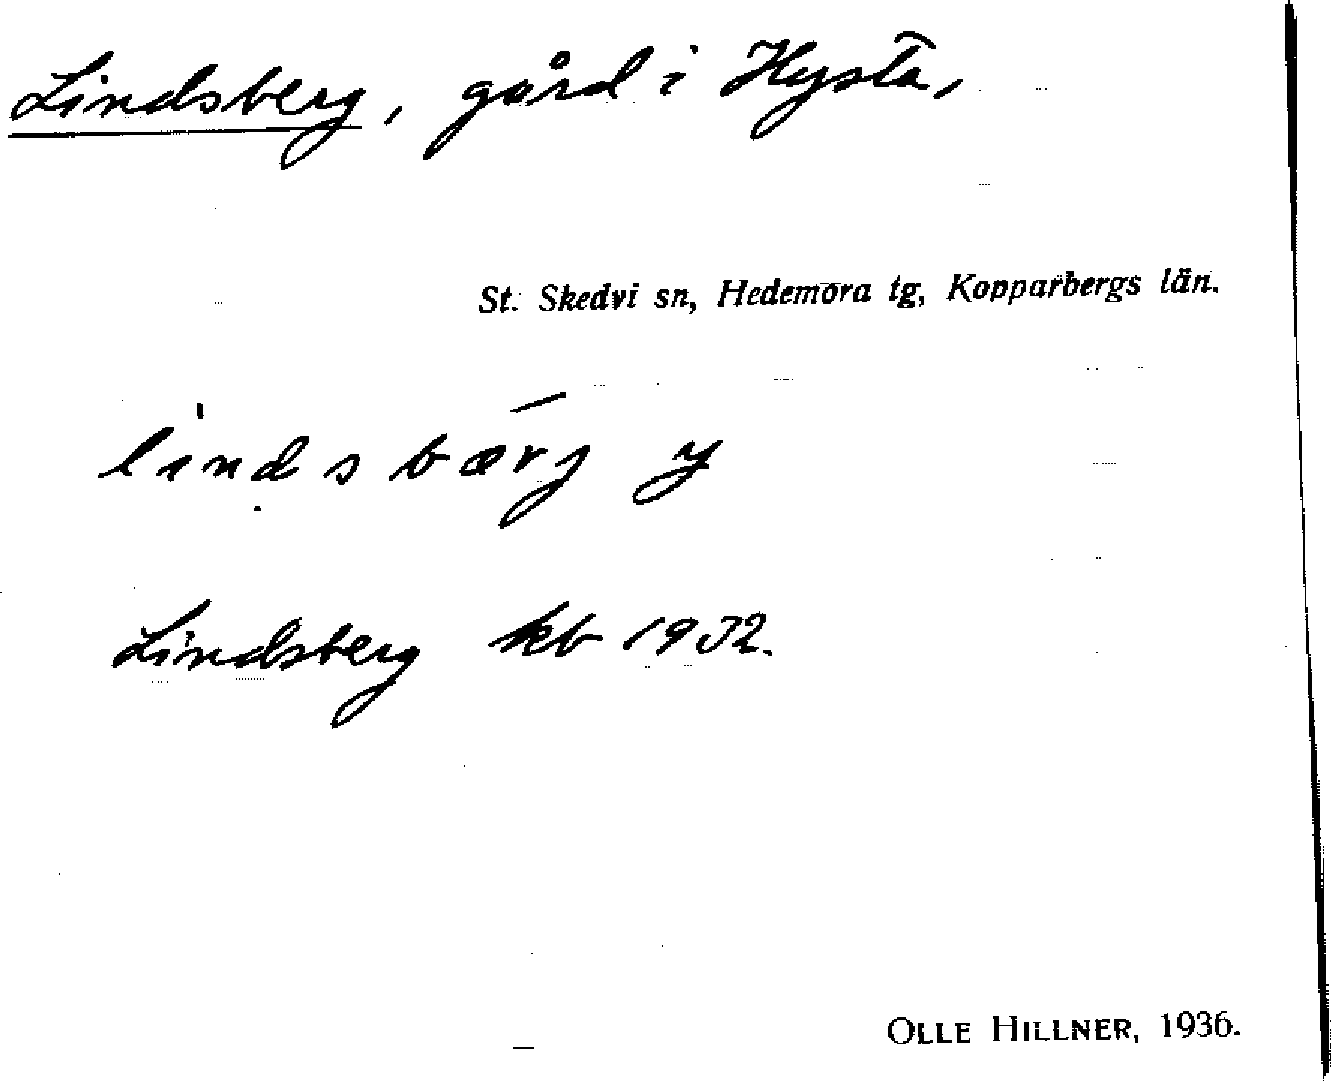 Lindsberg, gård i Hysta,
St. Skedvi sn, Hedemora tg, Kopparbergs län.
lindsbærj y
Lindsberg kb 1932.
OLLE HILLNER, 1936.